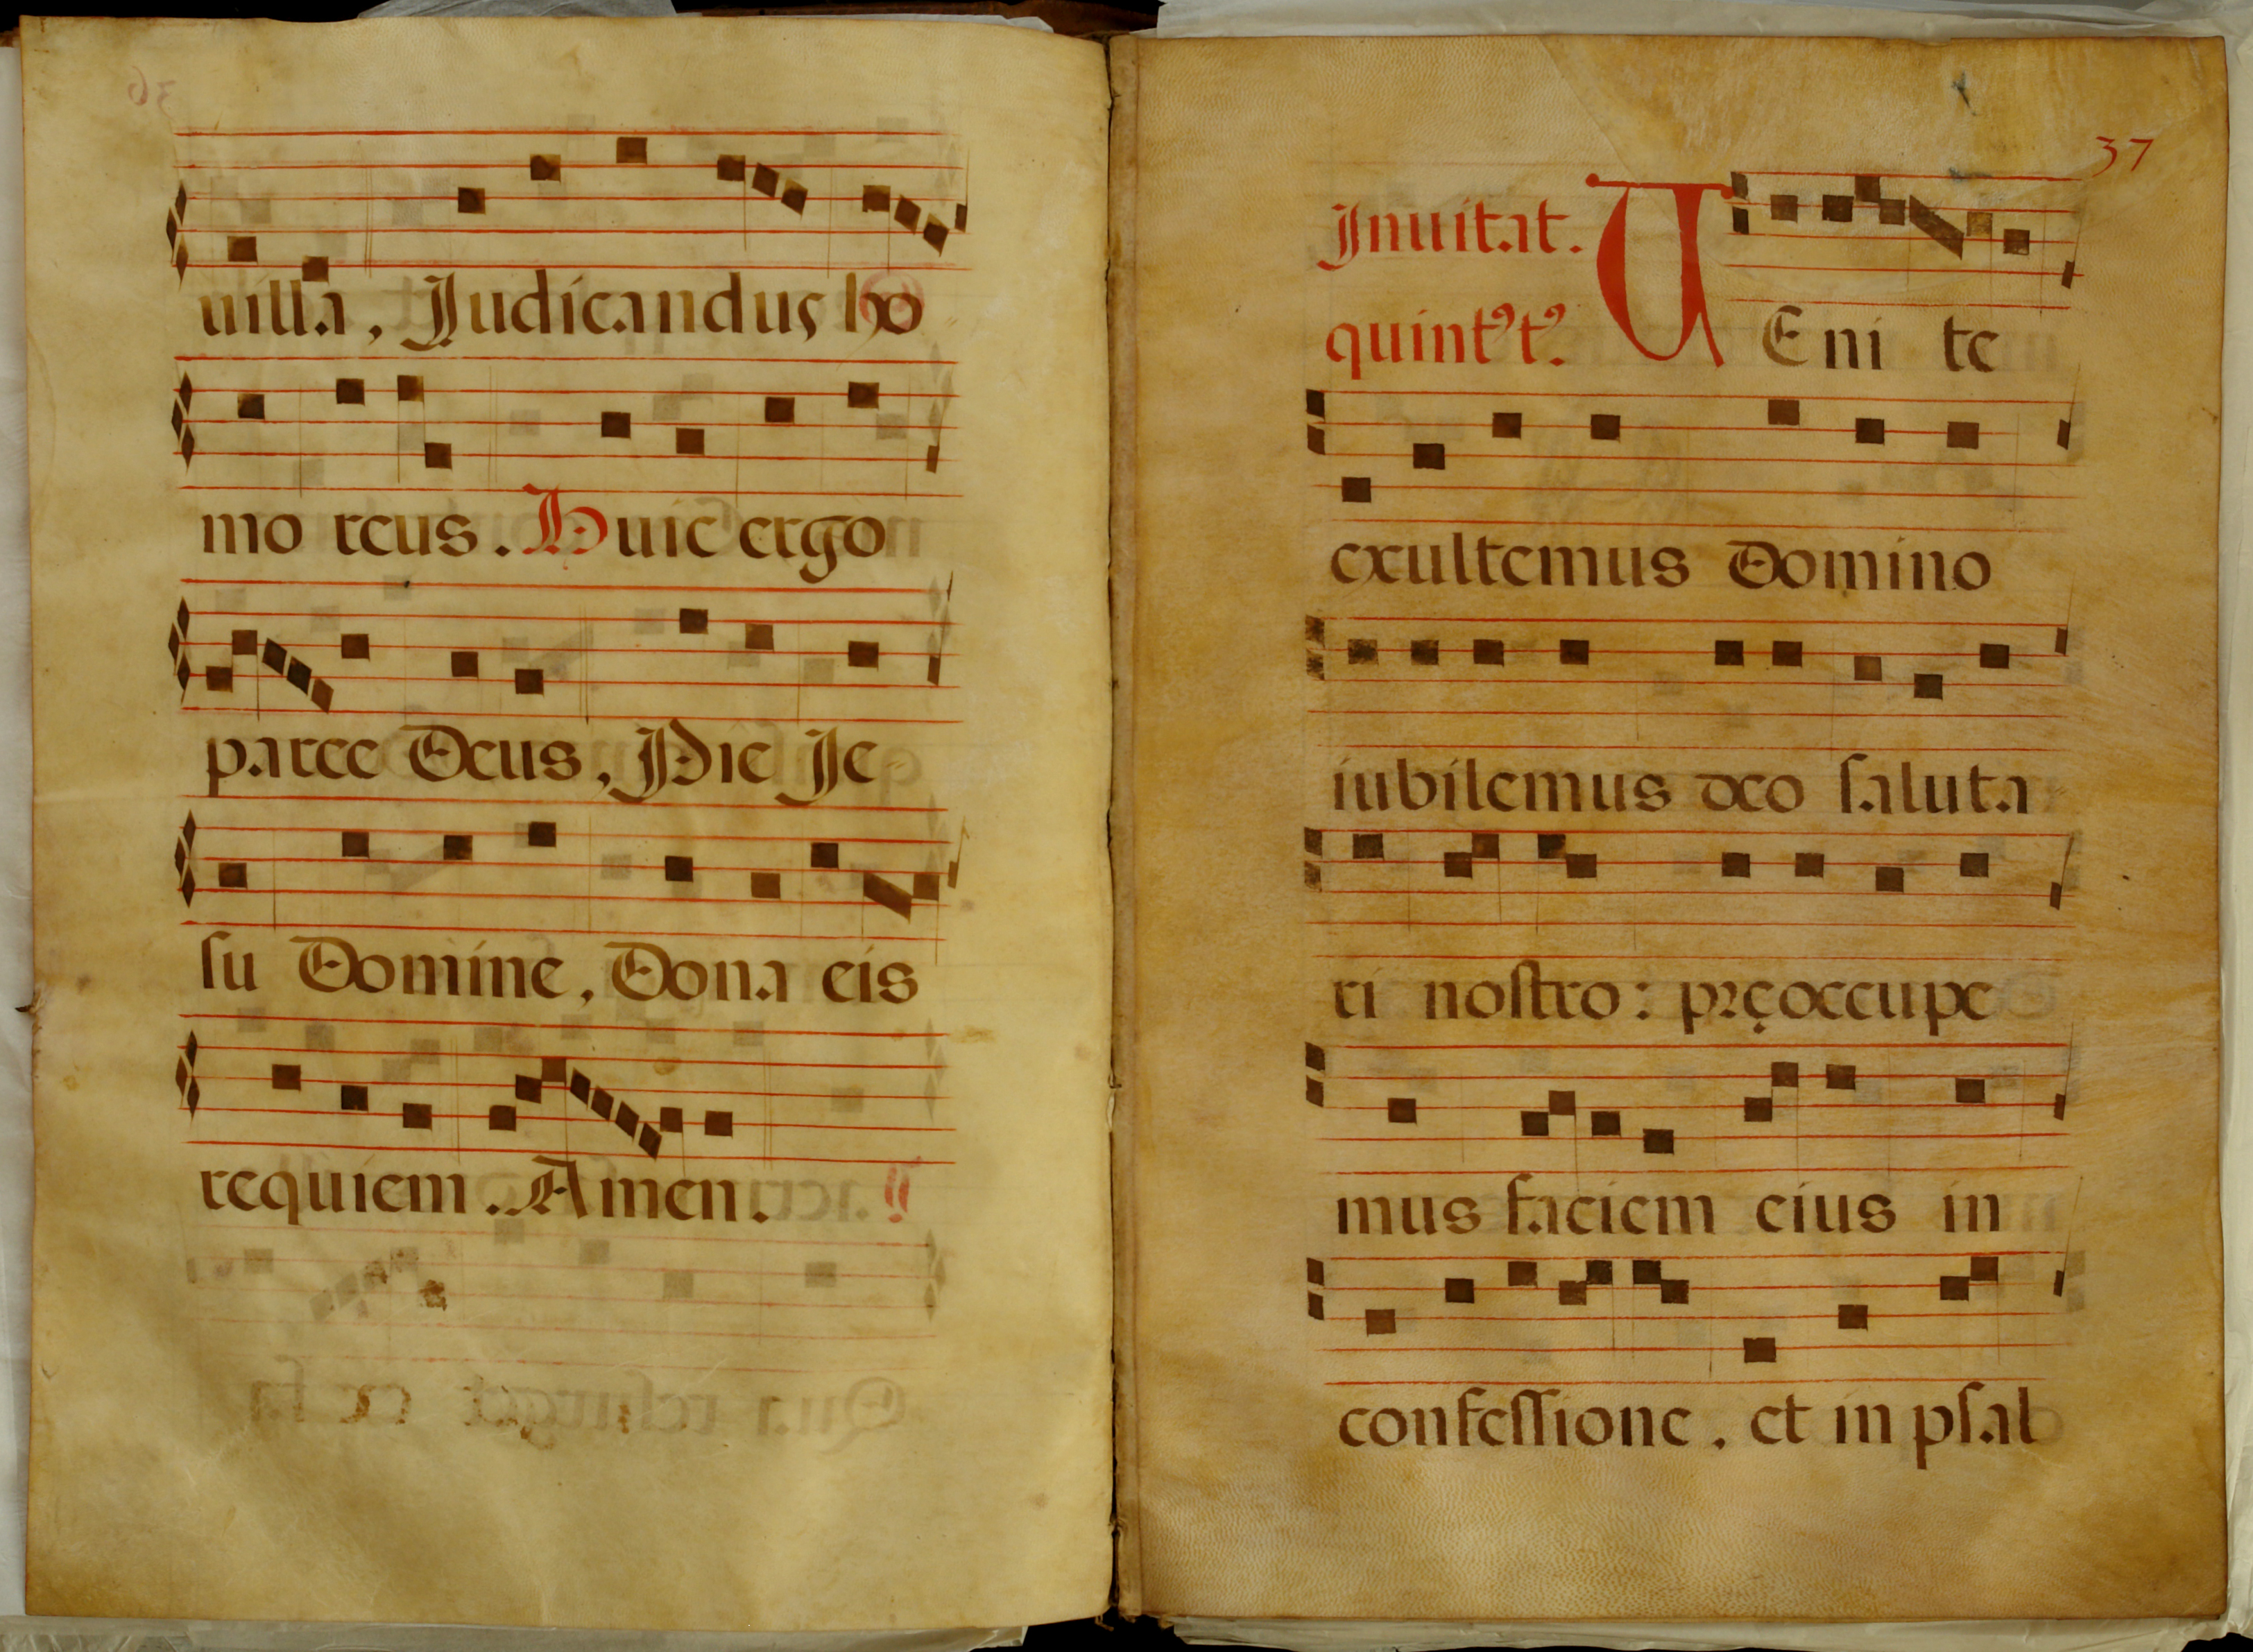 uilla, Judicandus ho
mo reus. Huic ergo
parce Deus, Pie Je
ſu Domine, Dona eis
requiem. Amen.
37
Jnuitat.
quintꝰ tꝰ.
VEni te
exultemus Domino
iubilemus deo ſaluta
ri noſtro: pręoccupe
mus faciem eius in
confeſſione. et in pſal